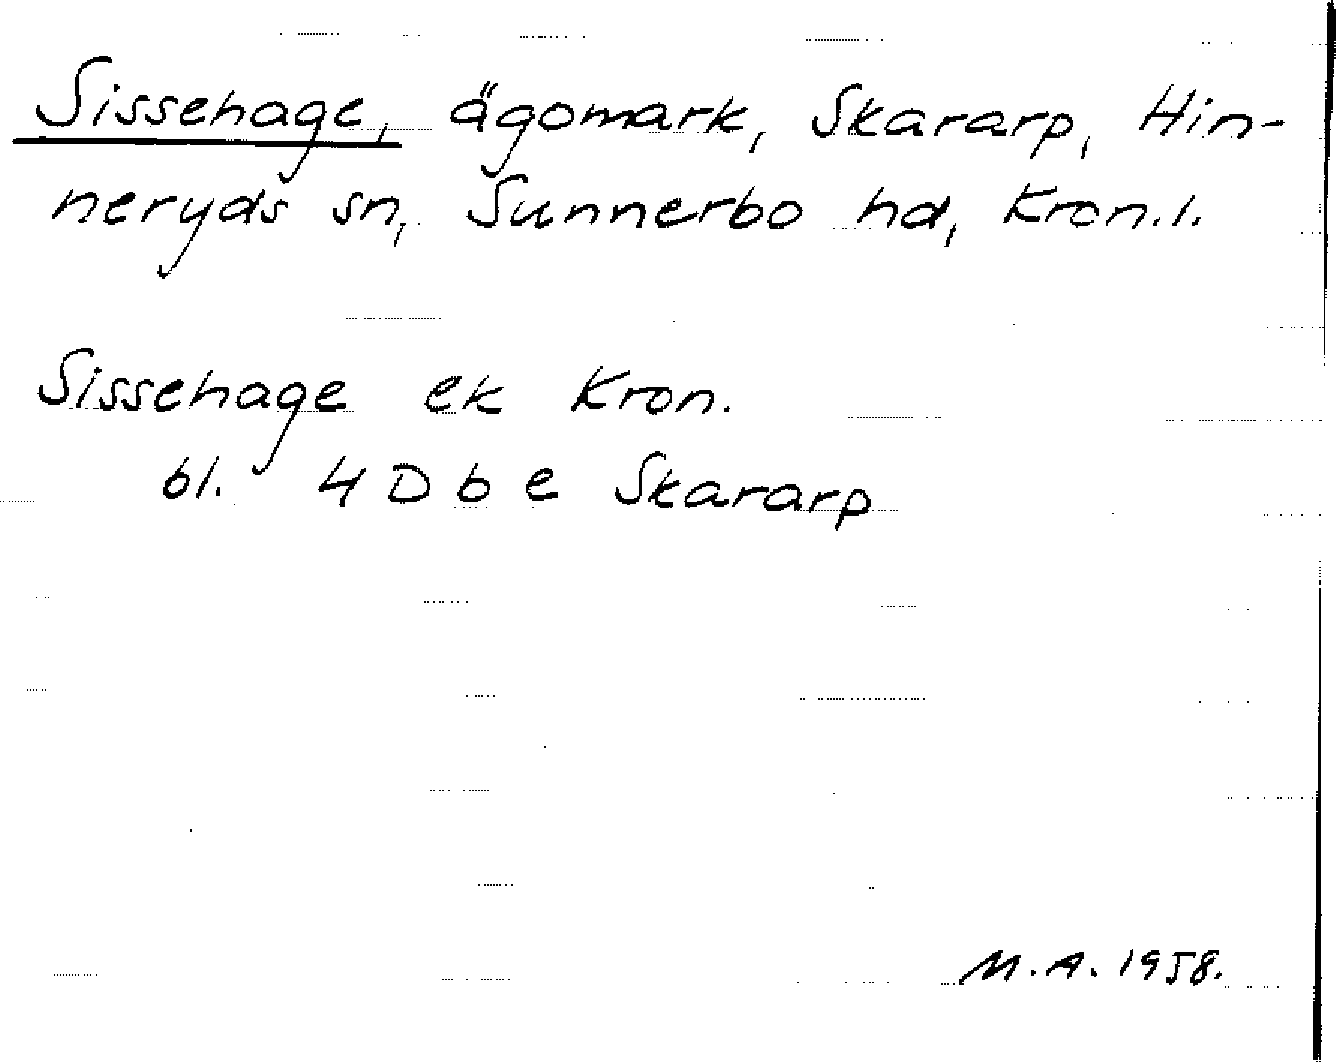 Sissehage, ägomark, Skararp, Hin-
neryds sn, Sunnerbo hd, Kron.l.
Sissehage ek Kron.
bl. 4 D b e Skararp
M.A. 1958.